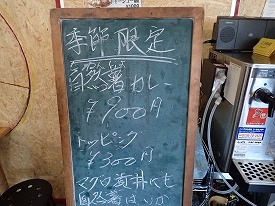 季節限定
自然薯カレー
¥900円
トッピング
¥300円
マグロ漬丼にも
自然薯はいか